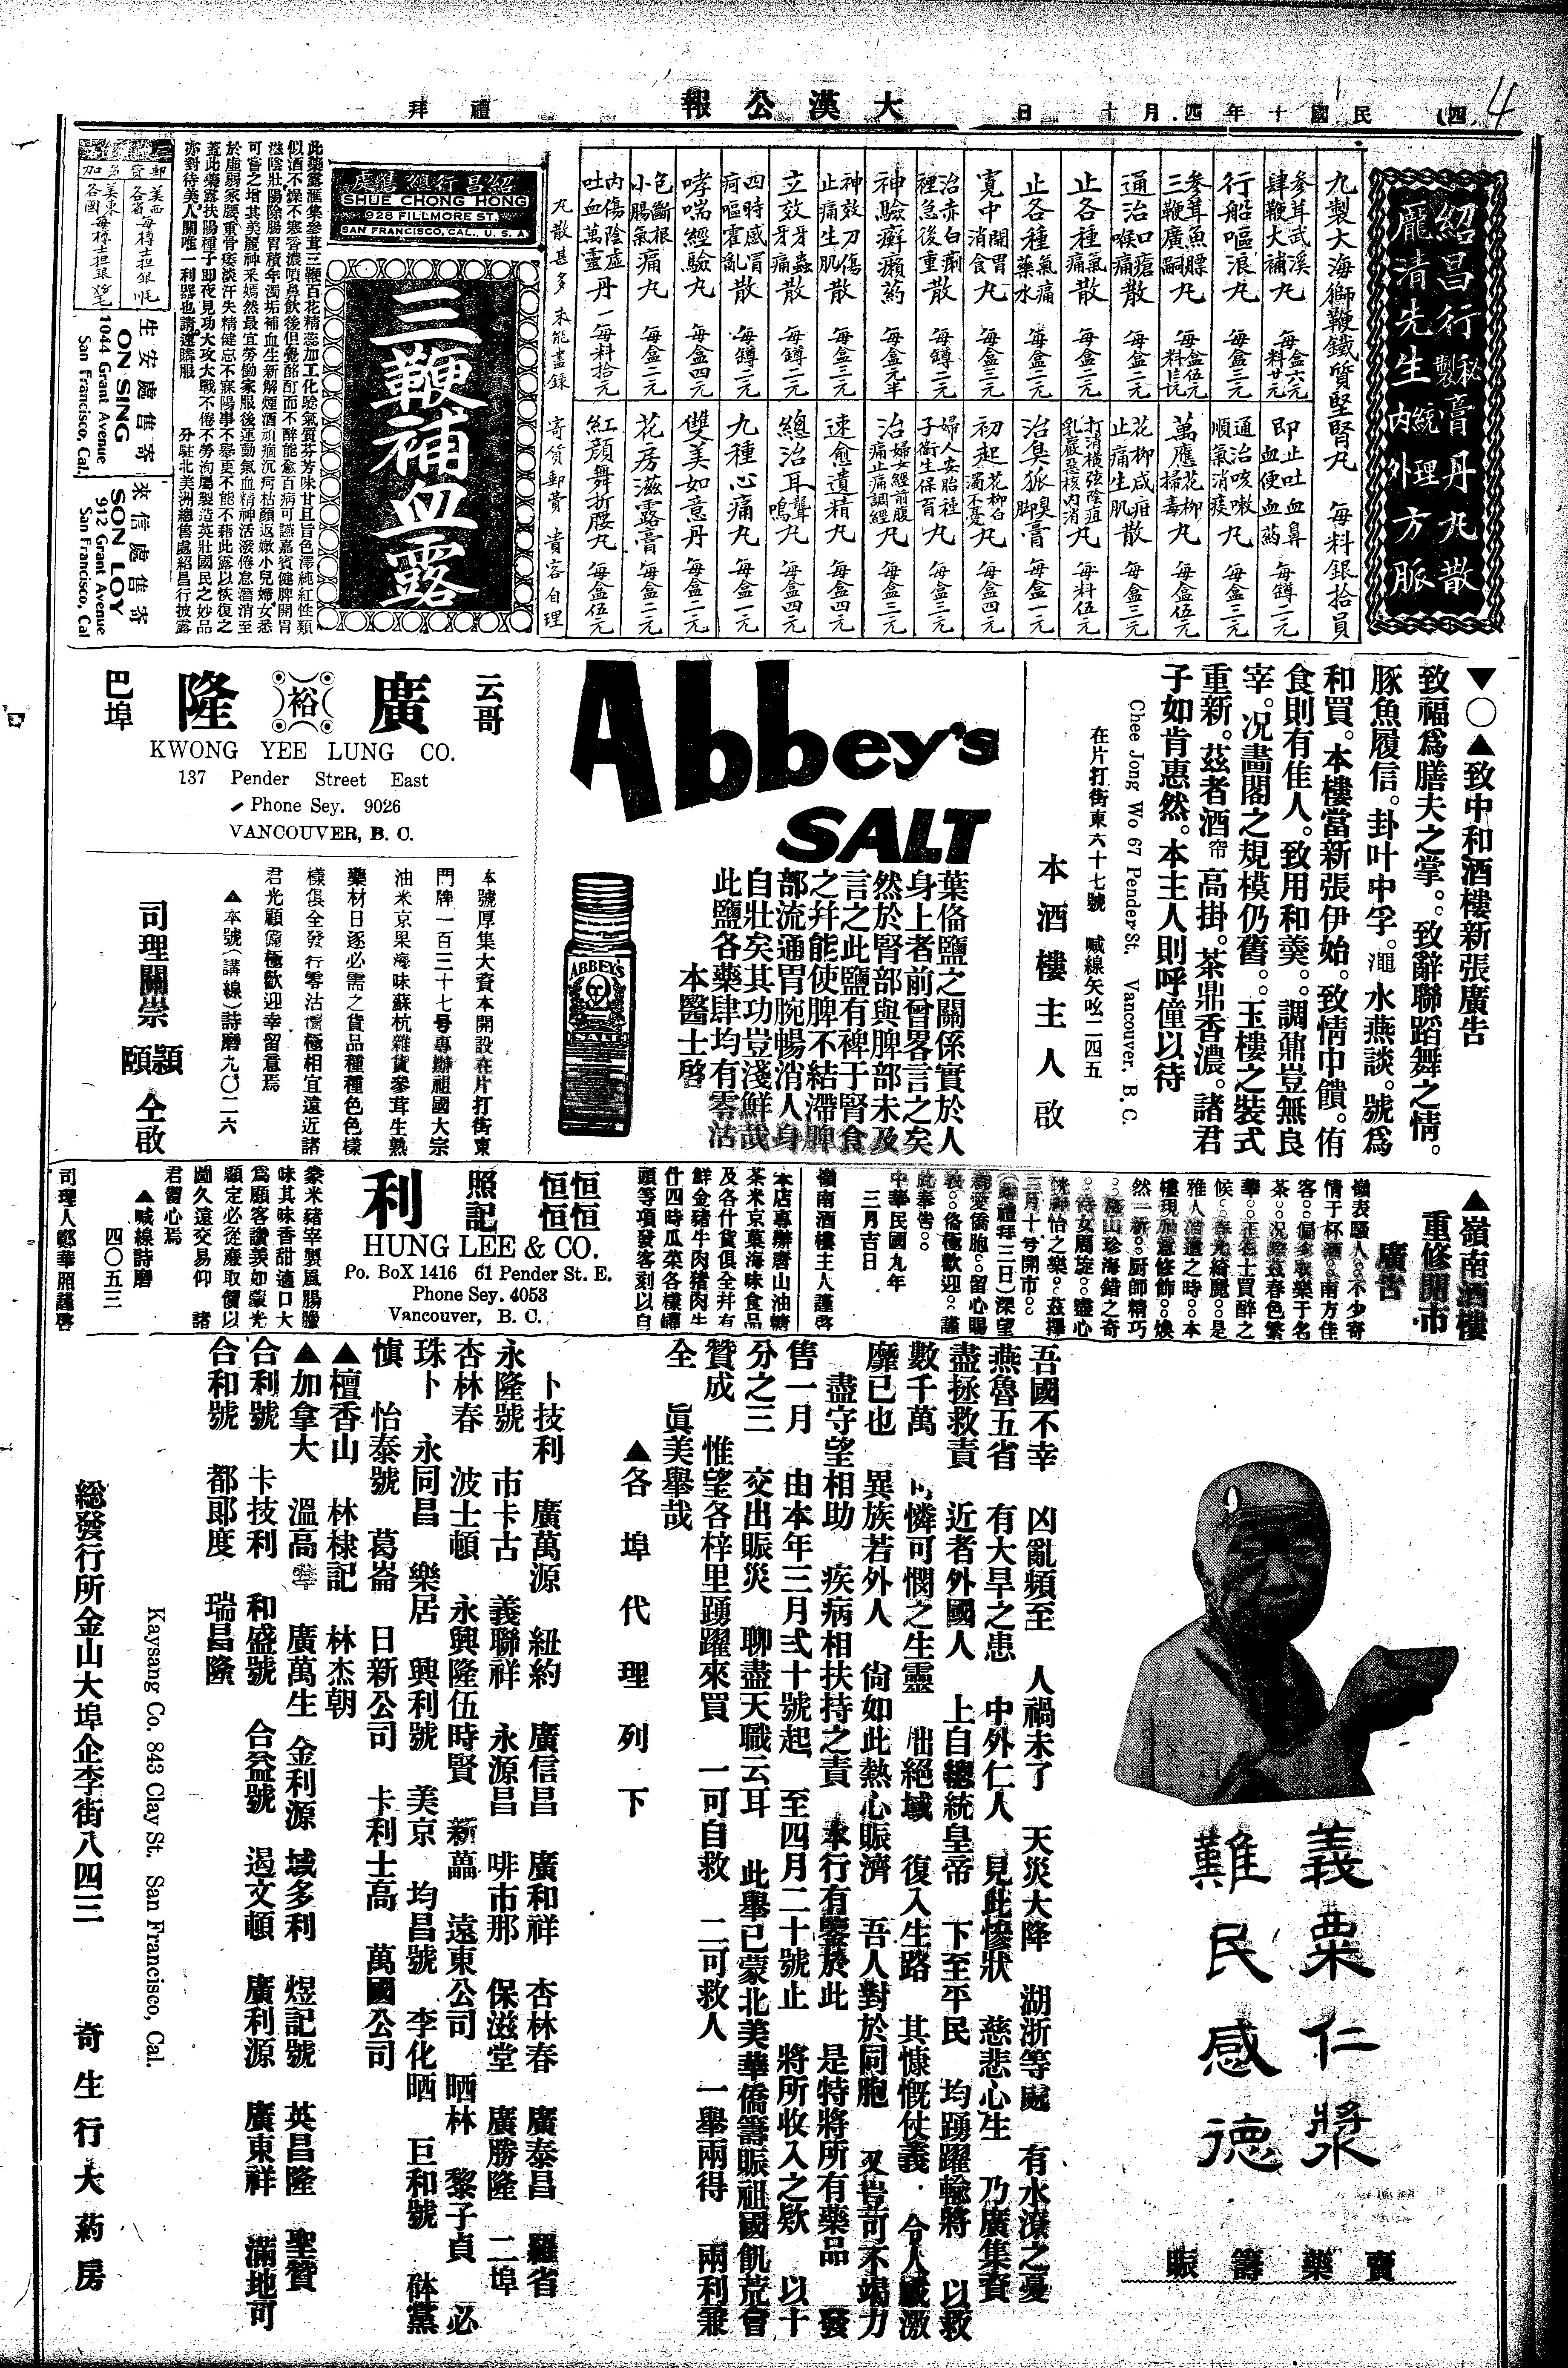 (四)
民國十年四月十一日
大漢公報
禮拜一
4
紹昌行秘製膏丹丸散
龐清先生統理內外方脈
九製大海獅鞭鐵質堅腎丸 每料銀拾員
參茸武溪肆鞭大補丸 每盒六元 每料廿元
行船嘔浪丸 每盒三元
參茸魚膘三鞭廣嗣丸
通治喉痛口瘡散 每盒二元
止各種氣痛散 每盒二元
止各種氣痛藥水 每盒二元
寬中開胃消食丸 每盒三元
治赤白痢裡急後重散 每罇二元
神驗癬癩葯
神效刀傷止痛生肌散 每盒三元
立效牙蟲牙痛散 每罇二元
四時感冒痾嘔霍亂散 每罇二元
哮喘經驗丸 每盒四元
包斷根小腸氣痛丸 每盒二元
內傷陰虛吐血萬靈丹 一每料拾元
即止吐血鼻血便血葯 每罇二元
通治咳嗽順氣消痰丸 每盒三元
萬應花柳掃毒丸 每盒伍元
花柳咸疳止痛生肌散 每盒三元
打消橫弦陰疽乳巖惡核內消丸 每料伍元
治臭狐臭脚膏 每盒一元
初起花柳白濁不憂丸 每盒四元
婦人安胎種子衛生保育丸 每盒三元
治婦女經前腹痛止痛調經丸 每盒三元
速愈遺精丸 每盒四元
總治耳聾耳鳴丸 每盒四元
九種心痛丸 每盒一元
雙美如意丹 每盒四元
花房滋露膏 每盒二元
紅顏舞折腰丸 每盒伍元
丸散甚多 未能盡錄 寄貨郵費 貴客自理
紹昌行總售處
SHUE CHONG HONG
928 FILLMORE ST.
SAN FRANCISCO, CAL., U. S. A.
三鞭補血露
此藥露滙集參茸三鞭百花精蕊加工化騐氣質芬芳味甘且旨色澤純紅性類
似酒不燥不寒香濃噴鼻飲後但覺酩酊而不醉能愈百病可讌嘉賓健脾開胃
滋陰壯陽除腸胃積年濁垢補血生新解煙酒頑癎沉疴枯顏返嫩小兒婦女悉
可嘗之增其美麗神釆嫣然最宜勞働家服後運動氣血精神活潑倦怠潛消至
於虛弱家腰重骨痿淡汗失精健忘不寐陽事不舉更不能不藉此露以恢復之
蓋此藥露扶陽種子即夜見功大攻大戰不倦不勞洵屬製造英壯國民之妙品
亦對待美人關唯一利器也請速購服 分駐北美洲總售處紹昌行披露
郵費另加
生安處售寄
ON SING
1044 Grant Avenue
San Francisco, Cal.
來信處售寄
SON LOY
912 Grant Avenue
San Francisco, Cal
▼○▲致中和酒樓新張廣告
致福爲膳夫之掌。。致辭聯蹈舞之情。
豚魚履信。卦叶中孚。澠水燕談。號爲
和買。本樓當新張伊始。致情中饋。侑
食則有佳人。致用和羹。。調鼐豈無良
宰。况畵閣之規模仍舊。。玉樓之裝式
重新。茲者酒帘高掛。茶鼎香濃。諸君
子如肯惠然。本主人則呼僮以待
Chee Jong Wo 67 Pender St. Vancouver, B. C.
在片打街東六十七號 喊線矢咗二四五
本酒樓主人啟
Abbey's
SALT
ABBEY'S
葉俻鹽之關係實於人
身上者前曾畧言之矣
然於腎部與脾部未及
言之此鹽有裨于腎食
之幷能使脾不結滯脾
部流通胃腕暢消人身
自壯矣其功豈淺鮮哉
此鹽各藥肆均有零沽
本醫士啓
云哥
廣裕隆
巴埠
KWONG YEE LUNG CO.
137 Pender Street East
Phone Sey. 9026
VANCOUVER, B. C.
本號厚集大資本開設在片打街東
門牌一百三十七号專辦祖國大宗
油米京果海味蘇杭雜貨參茸生熟
藥材日逐必需之貨品種種色色樣
樣俱全發行零沽價極相宜遠近諸
君光顧備極歡迎幸留意焉
▲本號(講線)詩磨九〇二六
司理關崇
頴頤
仝啟
▲嶺南酒樓
重修開市
廣告
嶺表騷人。。不少寄
情于杯酒。。南方佳
客。。偏多取樂于名
茶。。况際茲春色繁
華。。正名士買醉之
候。。春光綺麗。。是
雅人治遊之時。。本
樓現加意修飾。。煥
然一新。。厨師精巧
。。極山珍海錯之奇
。。侍女周旋。。盡心
恍神怡之樂。。茲擇
三月十号開市。。
(即禮拜三日)深望
親愛僑胞。。留心賜
敎。。俻極歡迎。。謹
此奉告。。
中華民國九年
三月吉日
嶺南酒樓主人謹啓
恒恒恒恒
照記
利
HUNG LEE & CO.
Po. BoX 1416 61 Pender St. E.
Phone Sey. 4053
Vancouver, B. C.
本店專辦唐山油糖
茶米京菓海味食品
及各什貨俱全幷有
鮮金豬牛肉猪肉生
什四時瓜菜各樣罐
頭等項發客剡以自
彖米豬宰製風腸臘
味其味香甜適口大
爲顧客讚美如蒙光
顧定必從廢取價以
圖久遠交易仰 諸
君留心焉
▲喊線詩磨
四〇五三
司理人鄭華照謹啓
義粟仁漿
難民感德
賣藥籌賑
吾國不幸 凶亂頻至 人禍未了 天災大降 湖浙等處 有水潦之憂
燕魯五省 有大旱之患 中外仁人 見此慘狀 慈悲心生 乃廣集賚
盡拯救責 近者外國人 上自總統皇帝 下至平民 均踴躍輸將 以救
數千萬 可憐可憫之生靈 出絕域 復入生路 其慷慨仗義 令人感激
靡已也 異族若外人 尙如此熱心賑濟 吾人對於同胞 又豈可不竭力
盡守望相助 疾病相扶持之責 本行有鑒於此 是特將所有藥品 發
售一月 由本年三月弍十號起 至四月二十號止 將所收入之欵 以十
分之三 交出賑災 聊盡天職云耳 此舉已蒙北美華僑籌賑祖國飢荒會
贊成 惟望各梓里踴躍來買 一可自救 二可救人 一舉兩得 兩利兼
全 眞美舉哉
▲各埠代理列下
卜技利 廣萬源 紐約 廣信昌 廣和祥 杏林春 廣泰昌 羅省
永隆號 市卡古 義聯祥 永源昌 啡市那 保滋堂 廣勝隆 二埠
杏林春 波士頓 永興隆伍時賢 新藟 遠東公司 晒林 黎子貞 必
珠卜 永同昌 樂居 興利號 美京 均昌號 李化晒 巨和號 砵黨
慎 怡泰號 葛崙 日新公司 卡利士高 萬國公司
▲檀香山 林棣記 林杰朝
▲加拿大 溫高華 廣萬生 金利源 域多利 煜記號 英昌隆 聖贊
合利號 卡技利 和盛號 合益號 遏文頓 廣利源 廣東祥 滿地可
合和號 都郎度 瑞昌隆
Kaysang Co. 843 Clay St. San Francisco, Cal.
総發行所金山大埠企李街八四三 奇生行大葯房